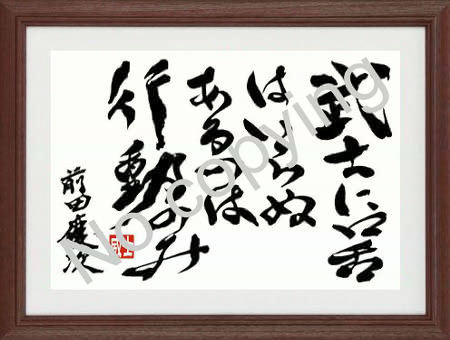 武士に口舌
はいらぬ
あるのは
行動のみ
前田慶次
No copying